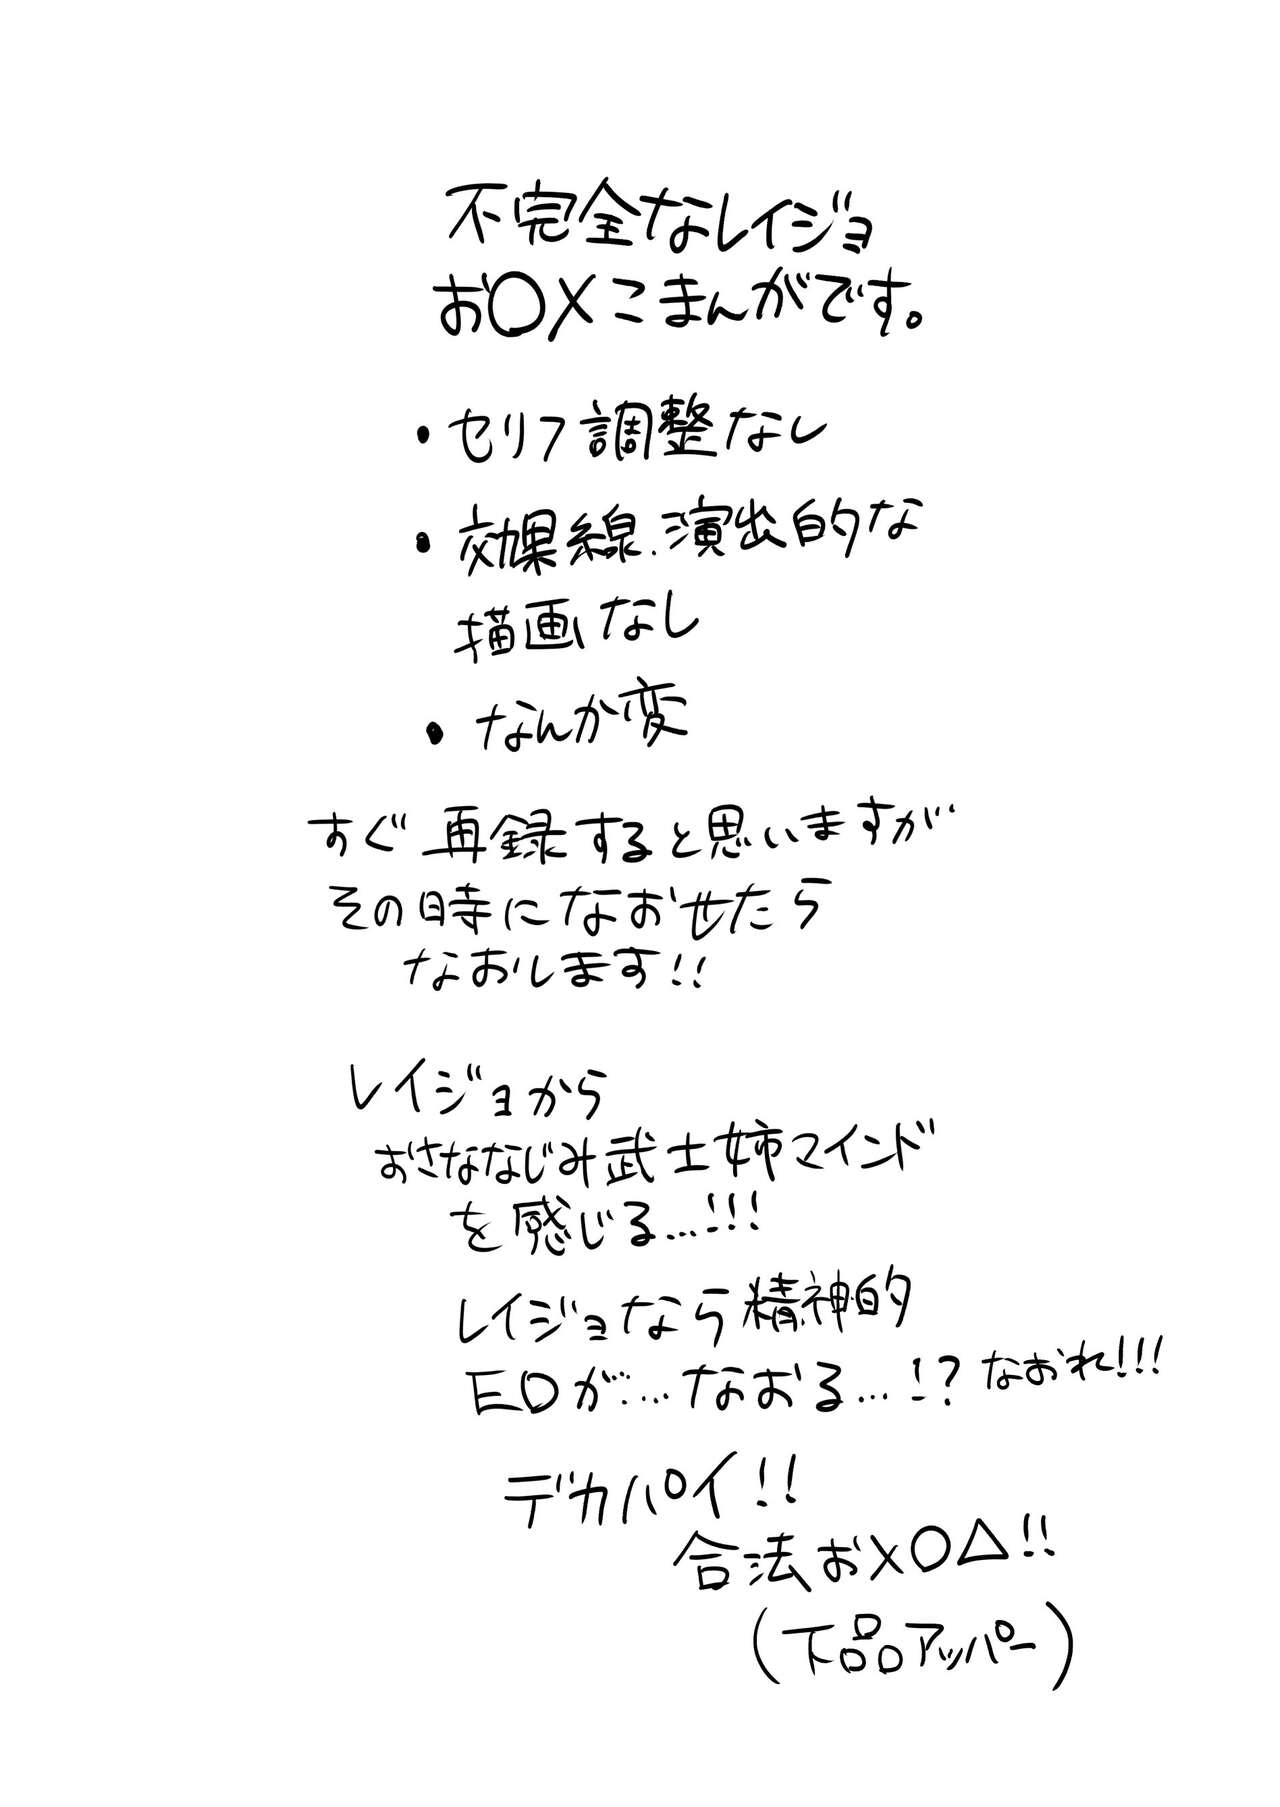 不完全なレイジョ
お〇×こまんがです。
・セリフ調整なし
・効果線、演出的な
描画なし
・なんか変
すぐ再録すると思いますが
その時になおせたら
なおします!!
レイジョから
おさななじみ武士姉マインド
を感じる…!!!
レイジョなら精神的
EDが……なおる…!? なおれ!!!
デカパイ!!
合法お×〇△!!
(下品アッパー)